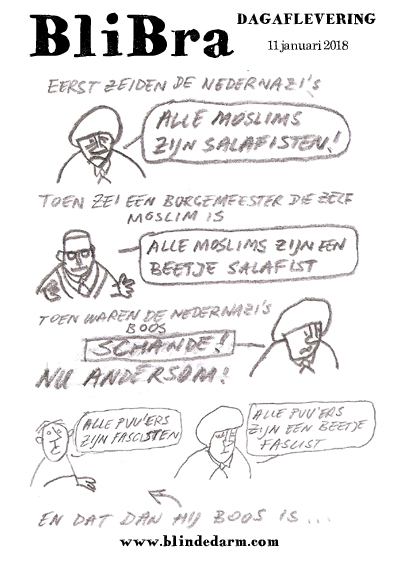 BliBra
DAGAFLEVERING
11 januari 2018
EERST ZEIDEN DE NEDERNAZI'S
ALLE MOSLIMS
ZIJN SALAFISTEN!
TOEN ZEI EEN BURGEMEESTER DIE ZELF
MOSLIM IS
ALLE MOSLIMS ZIJN EEN
BEETJE SALAFIST
TOEN WAREN DE NEDERNAZI'S
BOOS
SCHANDE!
NU ANDERSOM!
ALLE PVV'ERS
ZIJN FASCISTEN
ALLE PVV'ERS
ZIJN EEN BEETJE
FASCIST
EN DAT DAN HIJ BOOS IS...
www.blindedarm.com